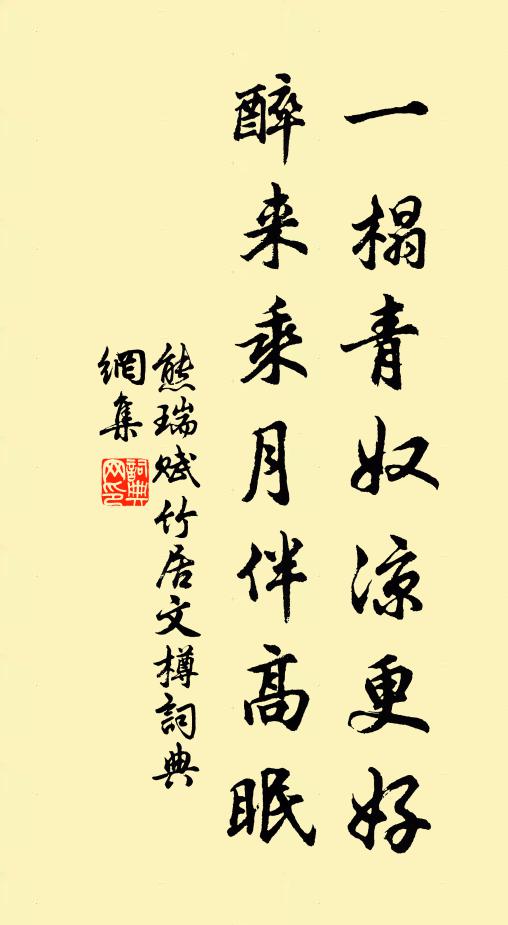 一榻青奴凉更好
醉来乘月伴高眠
熊瑞赋竹居文樽詞典
網集
詞典網印